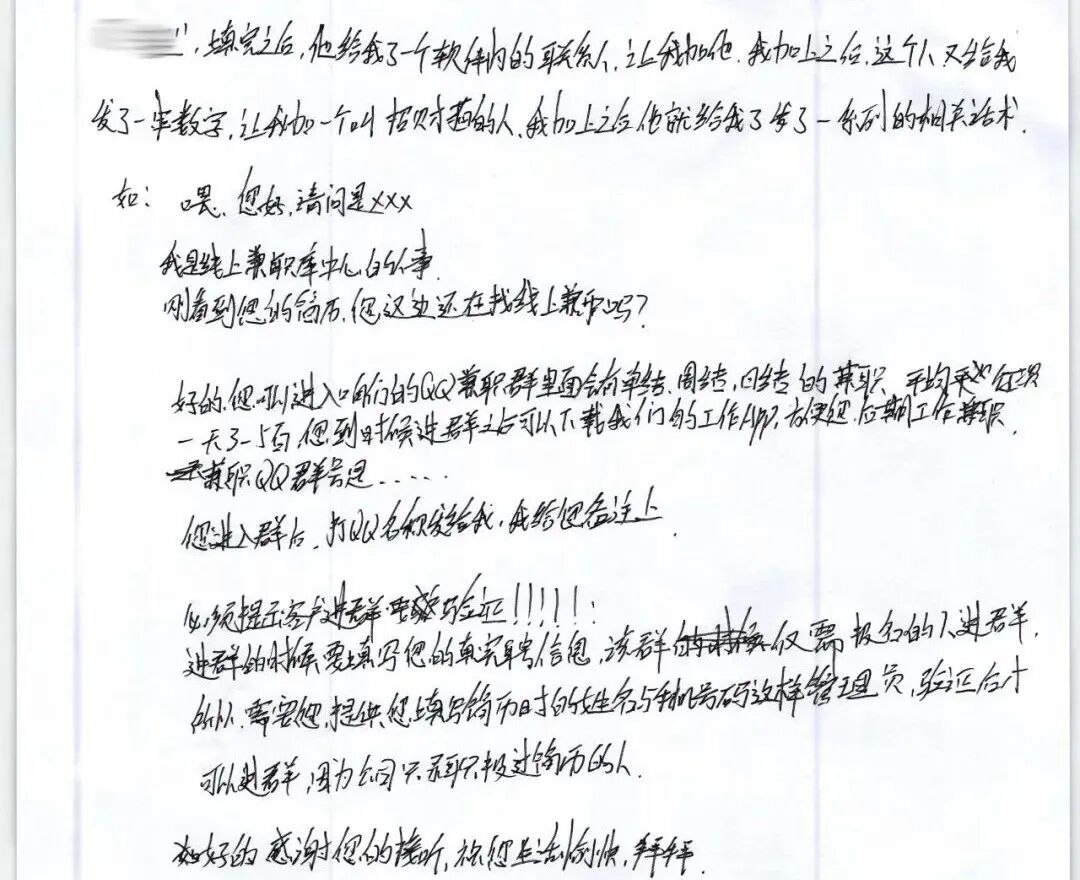 ”，填完之后，他给我了一个软件内的联系人，让我加他．我加上之后，这个人又给我
发了一串数字，让我加一个叫招财猫的人，我加上之后他就给我了发了一系列的相关话术．
如：喂、您好，请问是xxx
我是线上兼职库中心的公事．
刚看到您的简历，您这边还在找线上兼职吗？
好的，您可以进入咱们的QQ兼职群里面会有单结、周结，日结的兼职．平均
一天3-5百，您到时候进群之后可以下载我们的工作APP，方便您，后期工作兼职．
兼职QQ群号是......
您进入群后，打QQ名称发给我，我给您备注上．
必须提示客户进群验证！！！！！：
进群的时候需要填写您的真实聘信息，该群仅需报名的人进群，
所以，需要您，提供您填写简历时的姓名与手机号码这样管理员，验证后才
可以进群，因为公司只录职投过简历的人．
好的感谢您的接听，祝您生活愉快，拜拜．